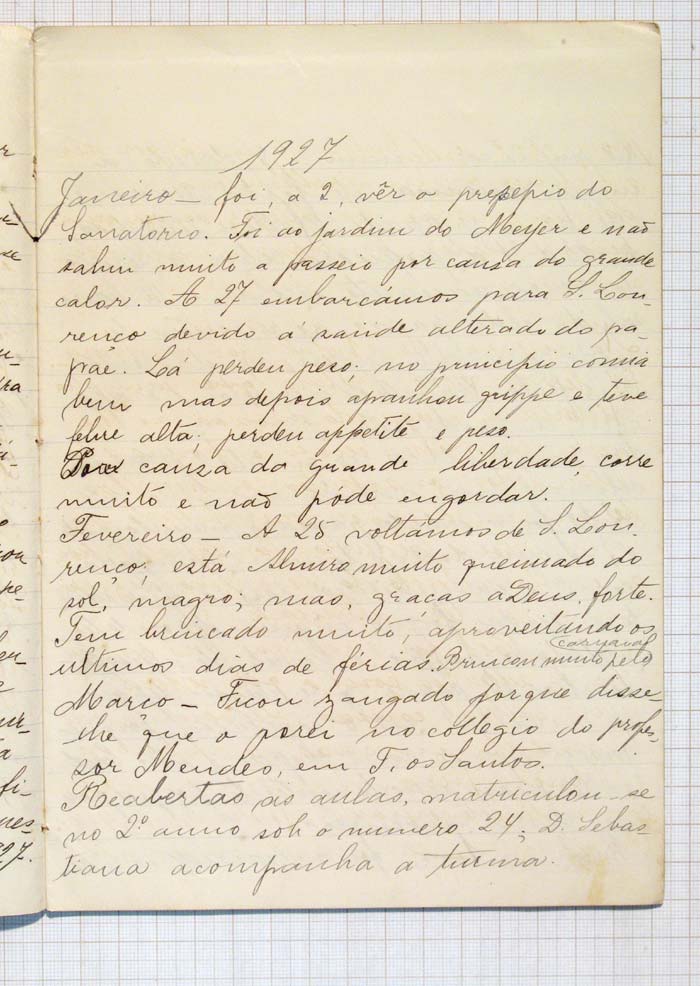 1927
Janeiro — foi, a 2, vêr o presepio do
Sanatorio. Foi ao jardim do Meyer e não
sahiu muito a passeio por causa do grande
calor. A 27 embarcámos para S. Lou-
renço devido á saúde alterada do pa-
páe. Lá perdeu peso; no principio comia
bem mas depois apanhou grippe e teve
febre alta; perdeu appetite e peso.
Por causa da grande liberdade, corre
muito e não póde engordar.
Fevereiro — A 25 voltámos de S. Lou-
renço; está Almiro muito queimado do
sol, magro; mas, graças a Deus, forte.
Tem brincado muito, aproveitando os
ultimos dias de férias. Brincou muito pelo
carnaval
Março — Ficou zangado porque disse-
lhe que o porei no collegio do profes-
sor Mendes, em T. os Santos.
Reabertas as aulas, matriculou-se
no 2º anno sob o numero 24; D. Sebas-
tiana acompanha a turma.
r
se
tra
o
ou
pe-
a
fi-
nes-
27.